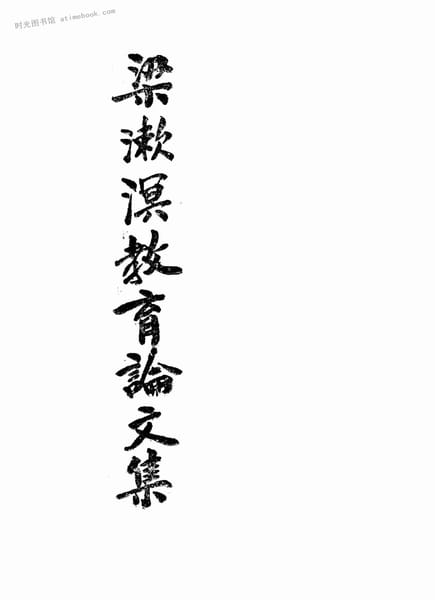 时光图书馆 atimebook.com
梁漱溟教育論文集